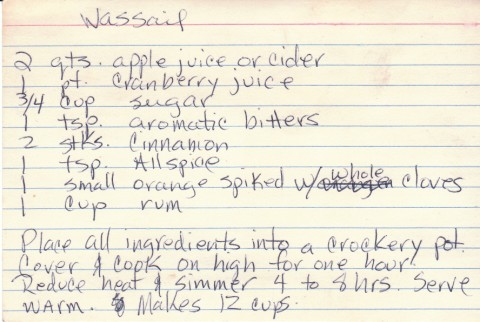 Wassail
2 qts. apple juice or cider
1 pt. cranberry juice
3/4 cup sugar
1 tsp. aromatic bitters
2 stks. Cinnamon
1 tsp. Allspice
1 small orange spiked w/ whole cloves
1 cup rum
Place all ingredients into a crockery pot.
Cover & cook on high for one hour.
Reduce heat & simmer 4 to 8 hrs. Serve
warm. Makes 12 cups.